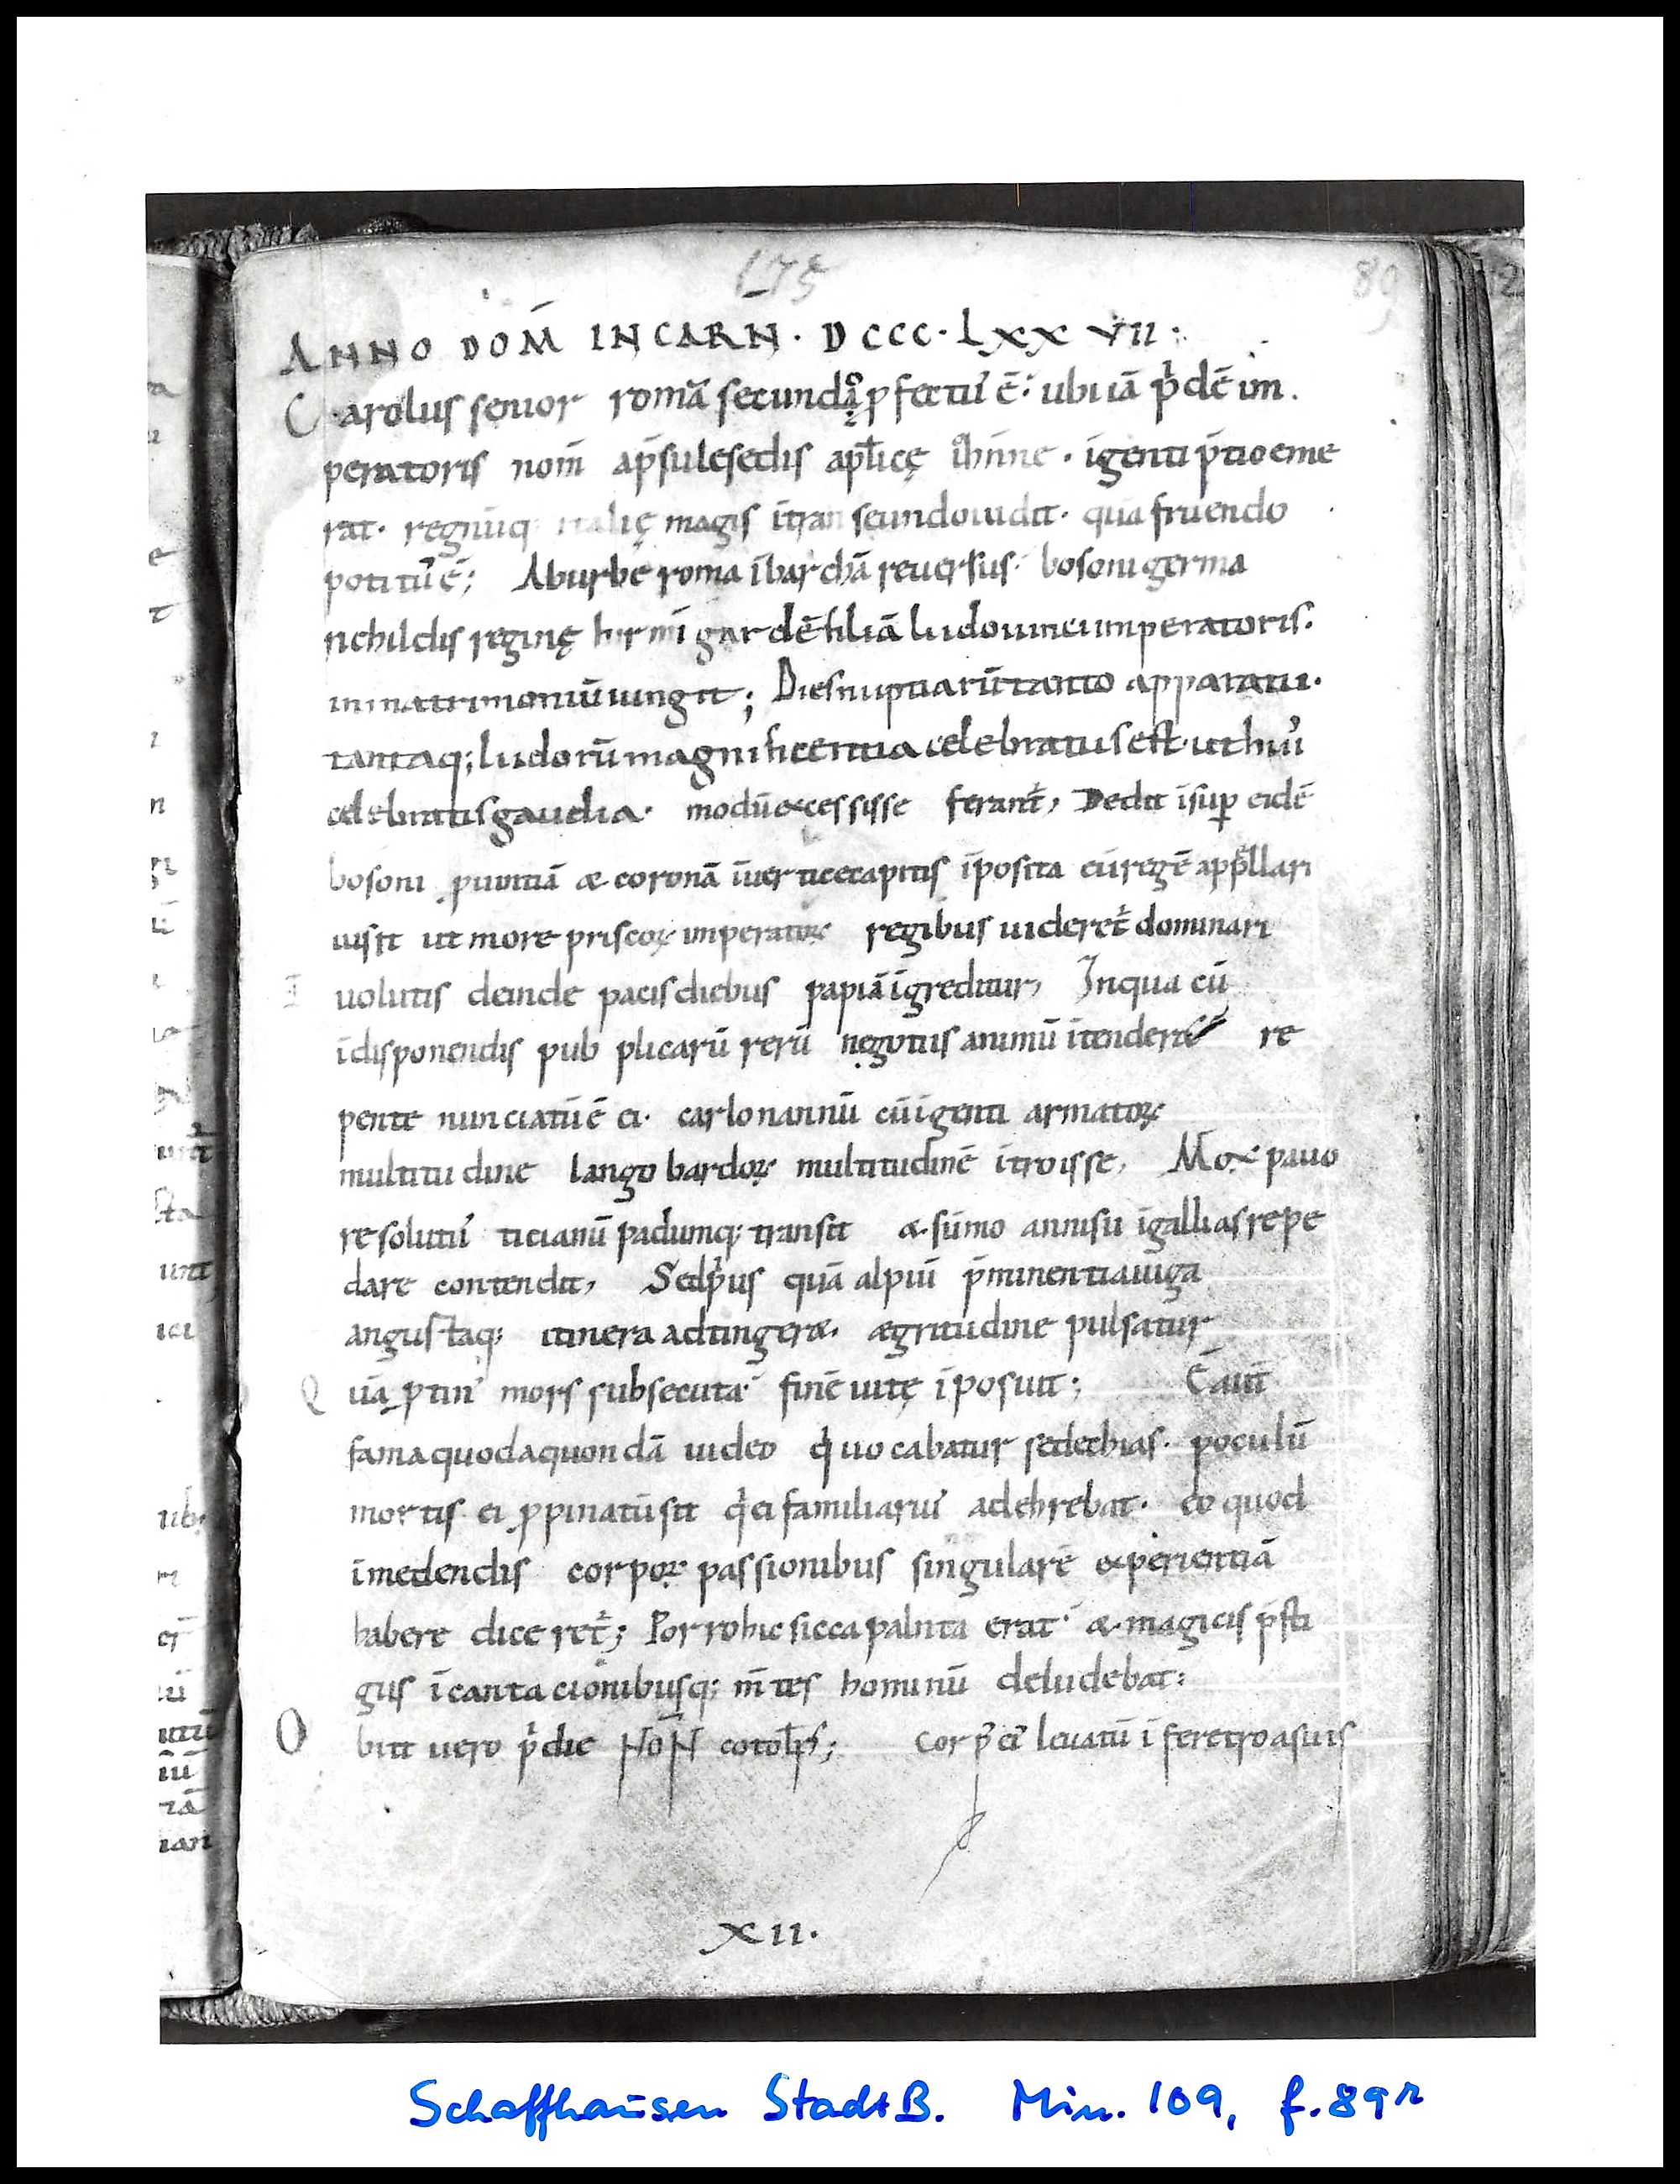 175
89
ANNO DOM̄ INCARN · DCCC · LXX VII :
Carolus senior romā secundo pfectu' ē · ubi iā p'dē im
peratoris nom̄ ap̄sule sedis apl̄icę iohñne · īgenti p̄tio eme
rat · regnūq; italię magis ītranseundo uidit · quā fruendo
potitu' ē ; Ab urbe roma ī barchā reuersus · bosoni germa
no hildis reginę hirmī gardē filiā ludouuici imperatoris ·
in matrimoniū iungit ; Dies nuptiarū tanto apparatu ·
tantaq; ludorū magnificentia celebratus est · ut hui'
celebritatis gaudia · modū excessisse ferant̄ , Dedit īsup eidē
bosoni puintiā & coronā ī uertice capitis īposita eū regē appellari
iussit ut more priscoꝝ imperatoꝝ regibus uideret̄ dominari
I uolutis deinde pacis diebus papiā īgreditur , In qua cū
ī disponendis pub plicarū rerū negotiis animū ītender& re
pente nunciatū ē ei · carlomannū cū īgenti armatoꝝ
multitudine langobardoꝝ multitudinē ītroisse , Mox pauo
re solutu' ticianū padumq; transit & sūmo annisu ī gallias repe
dare contendit , Sed p'us quā alpiū p̄minentia iuga
angustaq; itinera adtinger& · ægritudine pulsatur
Quā ptin' mors subsecuta · finē uitę īposuit ; Ē aut̄
fama quod a quondā iudeo q'i uocabatur sedechias · poculū
mortis ei ppinatū sit q'i ei familiariu' adehrebat · eo quod
ī medendis corpoꝝ passionibus singularē experientiā
habere diceret̄ ; Porro hic sicca palnta erat · & magicis p̄sti
gus īcantacionibusq; m̄tes hominū deludebat :
Obiit uero p'die NON̄ ; corp' ei' leuatū ī feretro a suis
XII ·
Schaffhausen StadtB. Min. 109, f. 89r